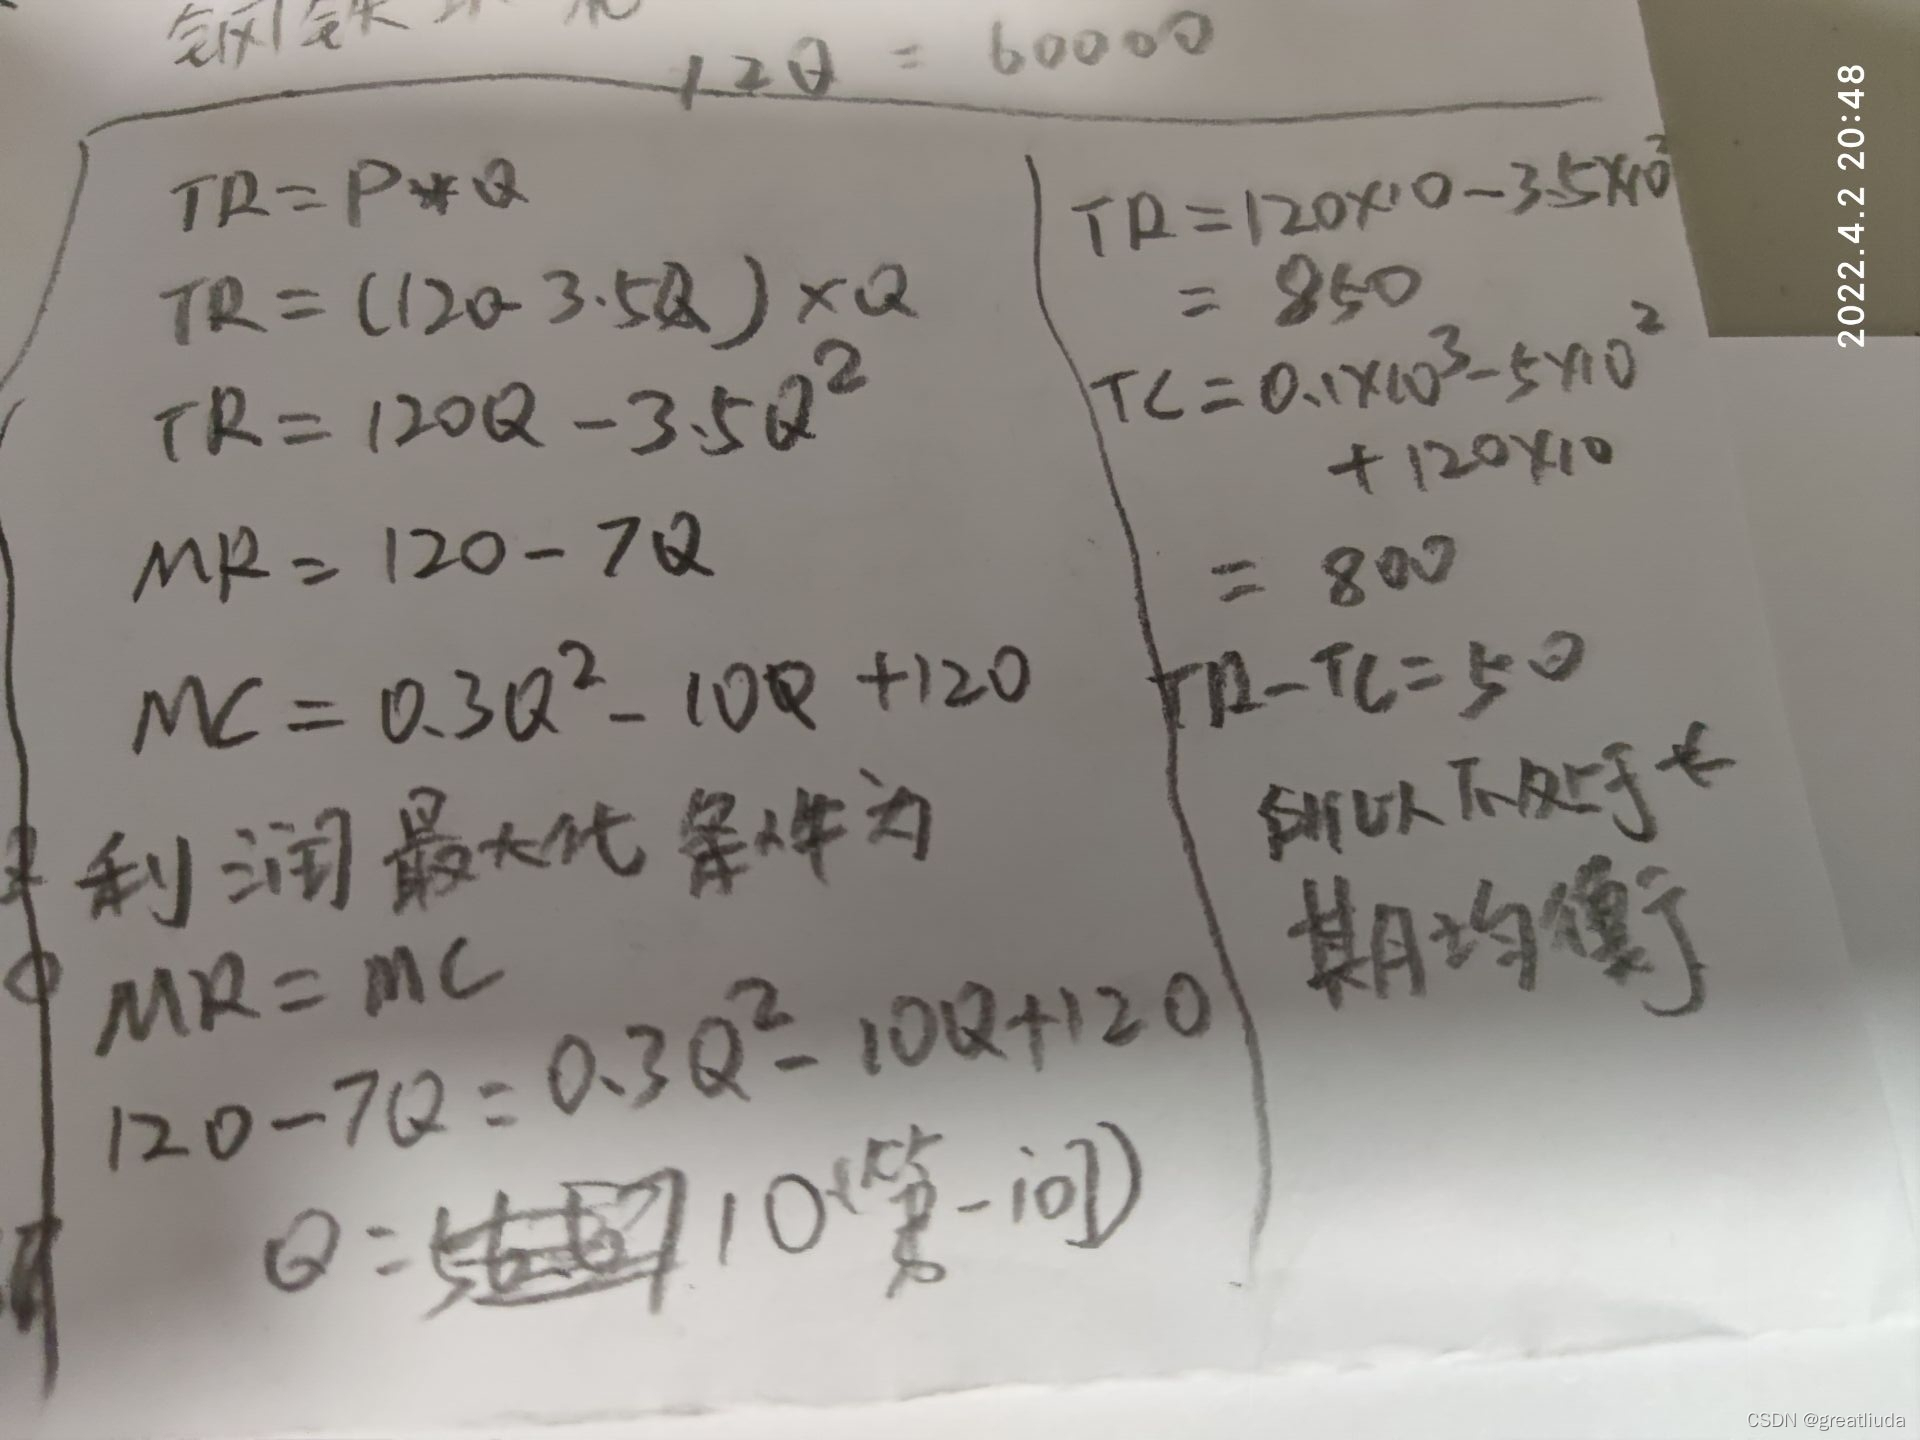 钢铁
12Q = 60000
TR = P*Q
TR = (120-3.5Q)×Q
TR = 120Q - 3.5Q²
MR = 120 - 7Q
MC = 0.3Q² - 10Q +120
利润最大化条件为
MR = MC
120 - 7Q = 0.3Q² - 10Q+120
Q = 10(第一问)
TR = 120×10 - 3.5×10²
= 850
TC = 0.1×10³ - 5×10²
+ 120×10
= 800
TR - TC = 50
所以不处于长
期均衡
2022.4.2 20:48
CSDN @greatliuda